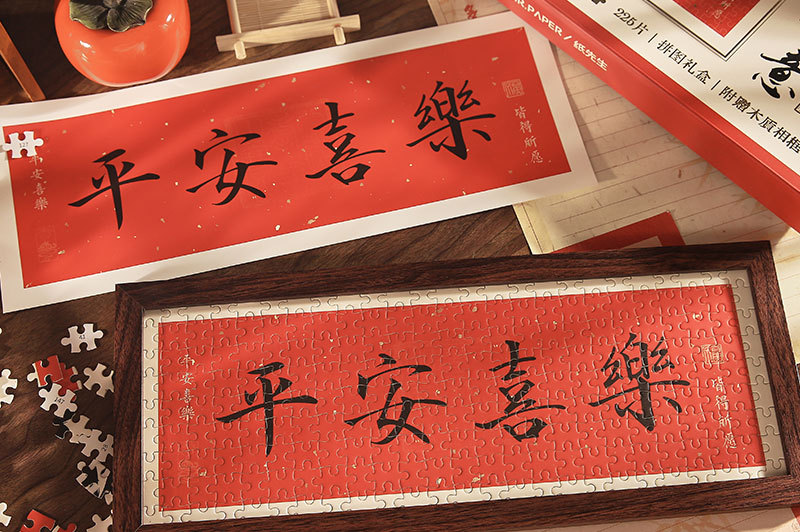 R.PAPER / 纸先生
225片 | 拼图礼盒 | 附赠木质相框
意
平安喜樂
皆得所愿
平安喜樂
127
平安喜樂
皆得所愿
平安喜樂
41
147